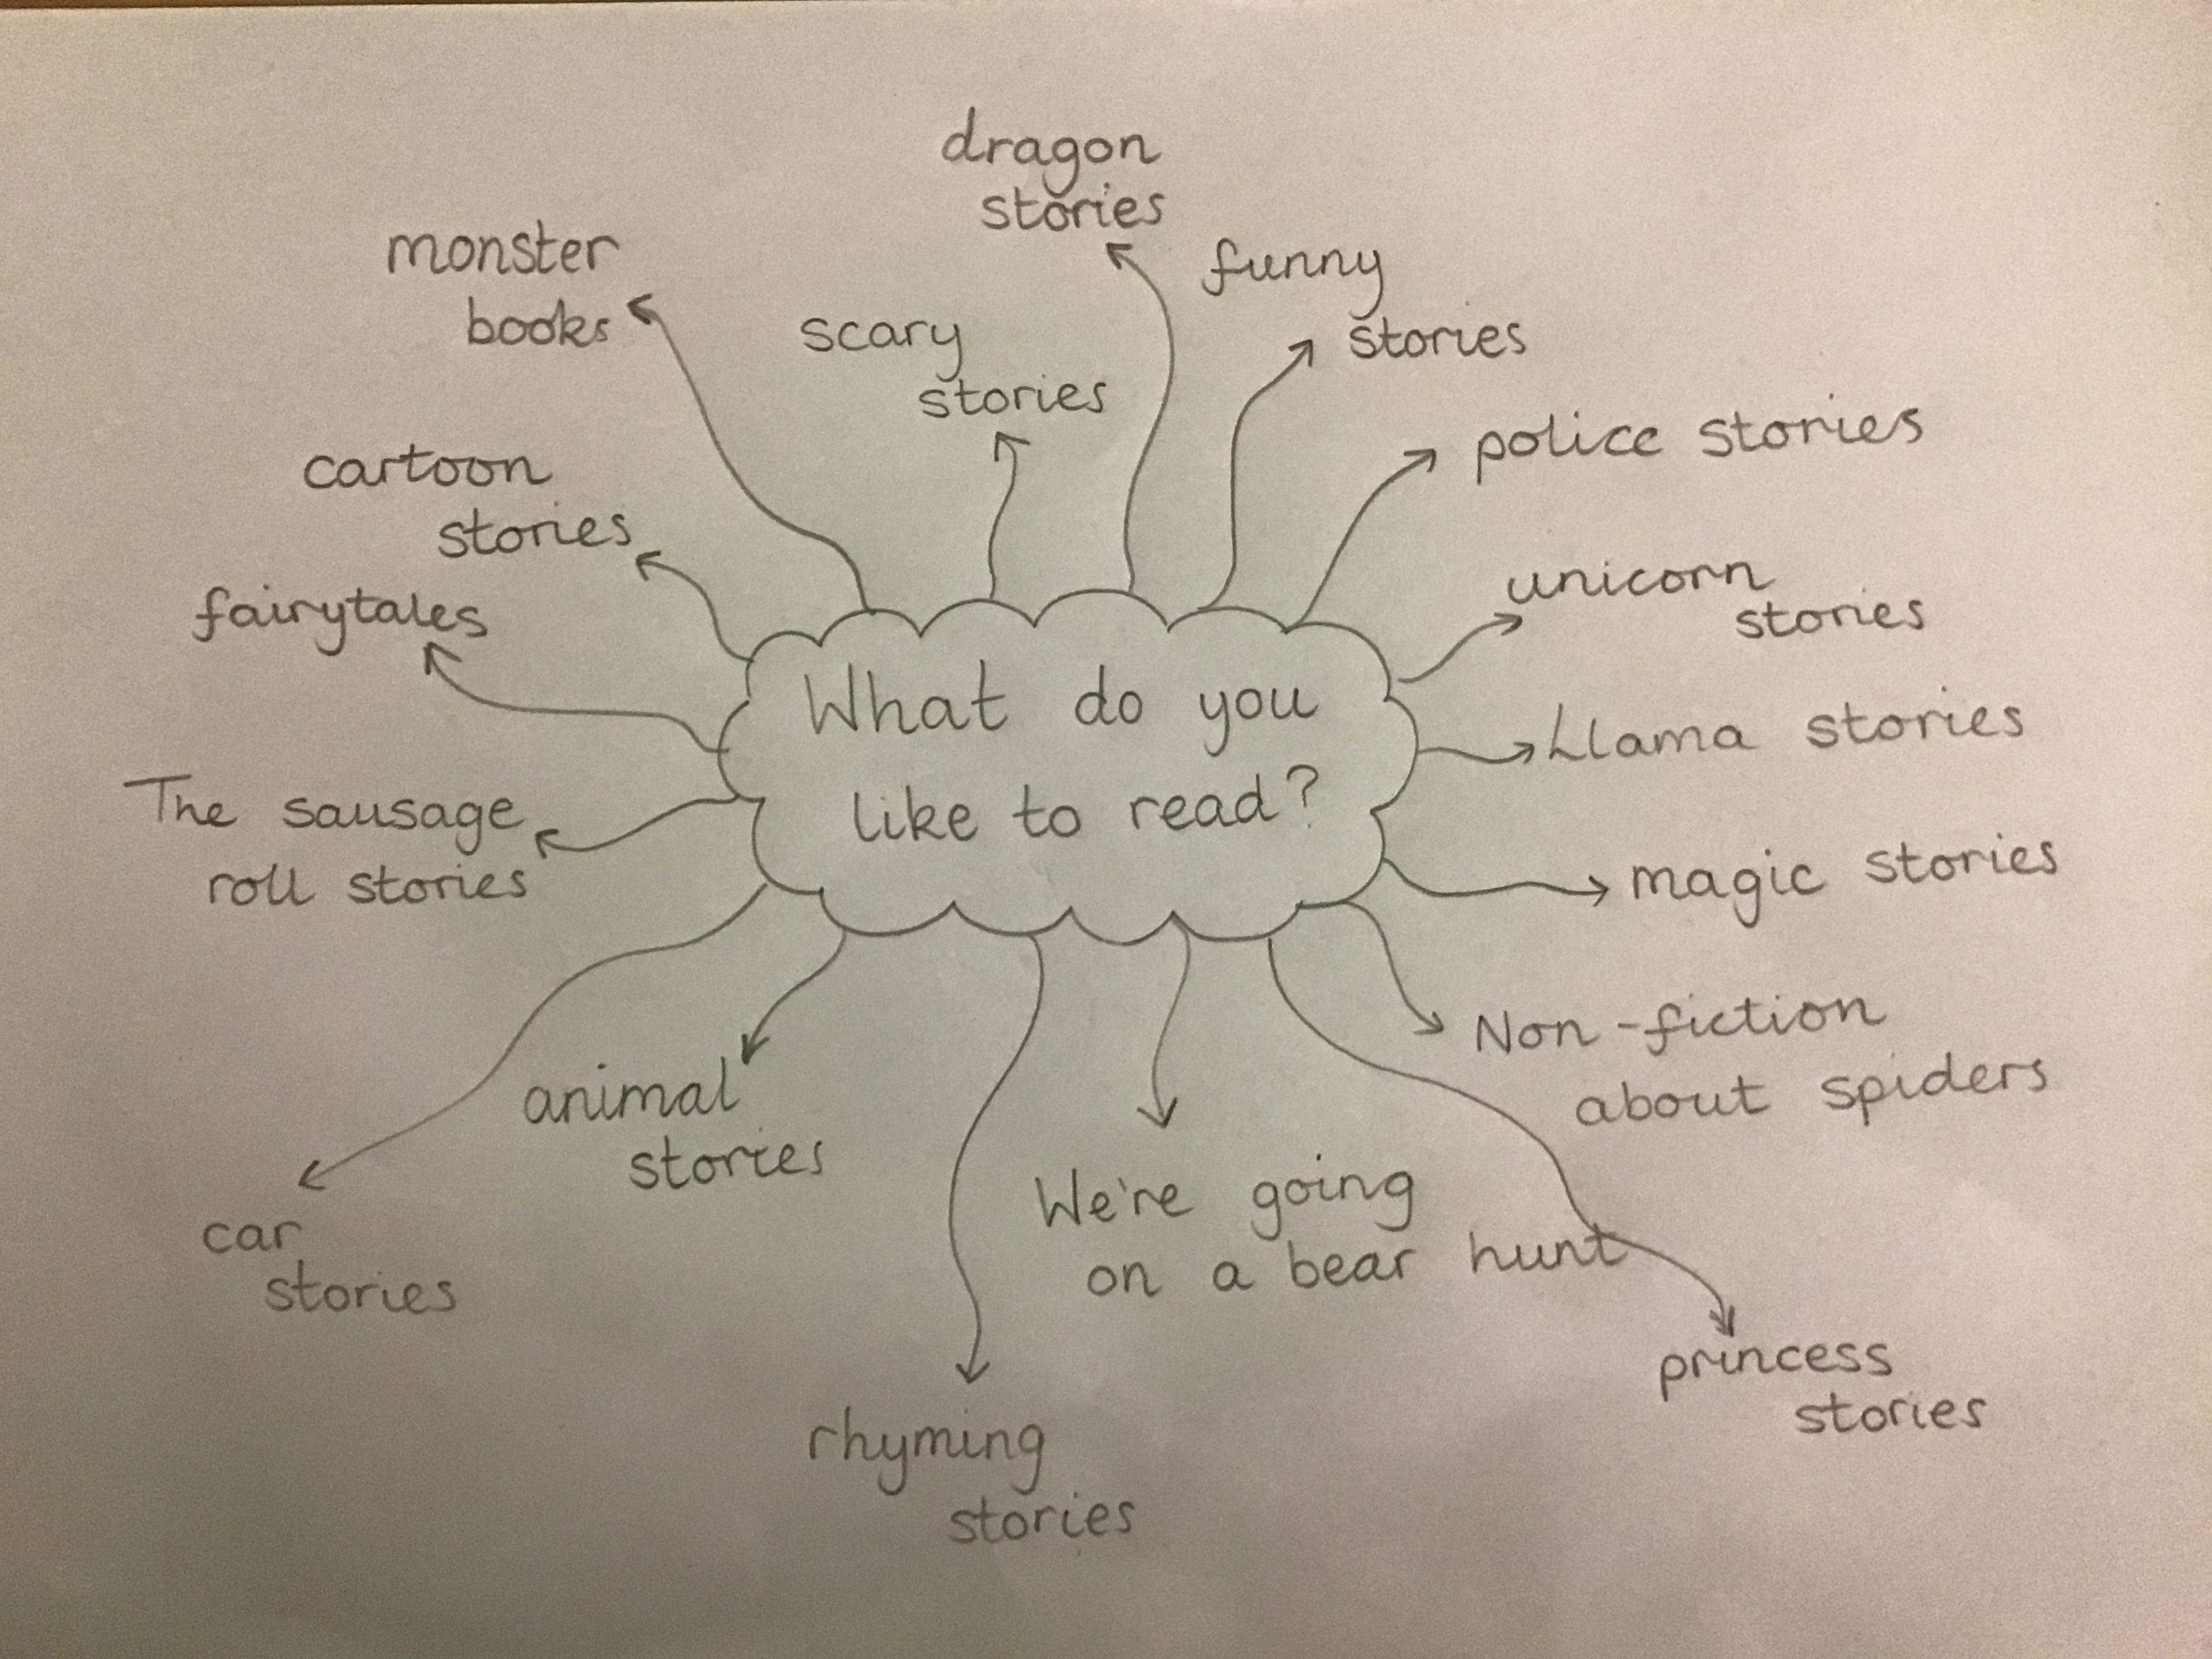 dragon
stories
monster
books
scary
stories
funny
stories
police stories
cartoon
stories
fairytales
unicorn
stories
What do you
like to read?
Llama stories
The sausage
roll stories
magic stories
Non-fiction
about spiders
animal
stories
car
stories
We're going
on a bear hunt
princess
stories
rhyming
stories